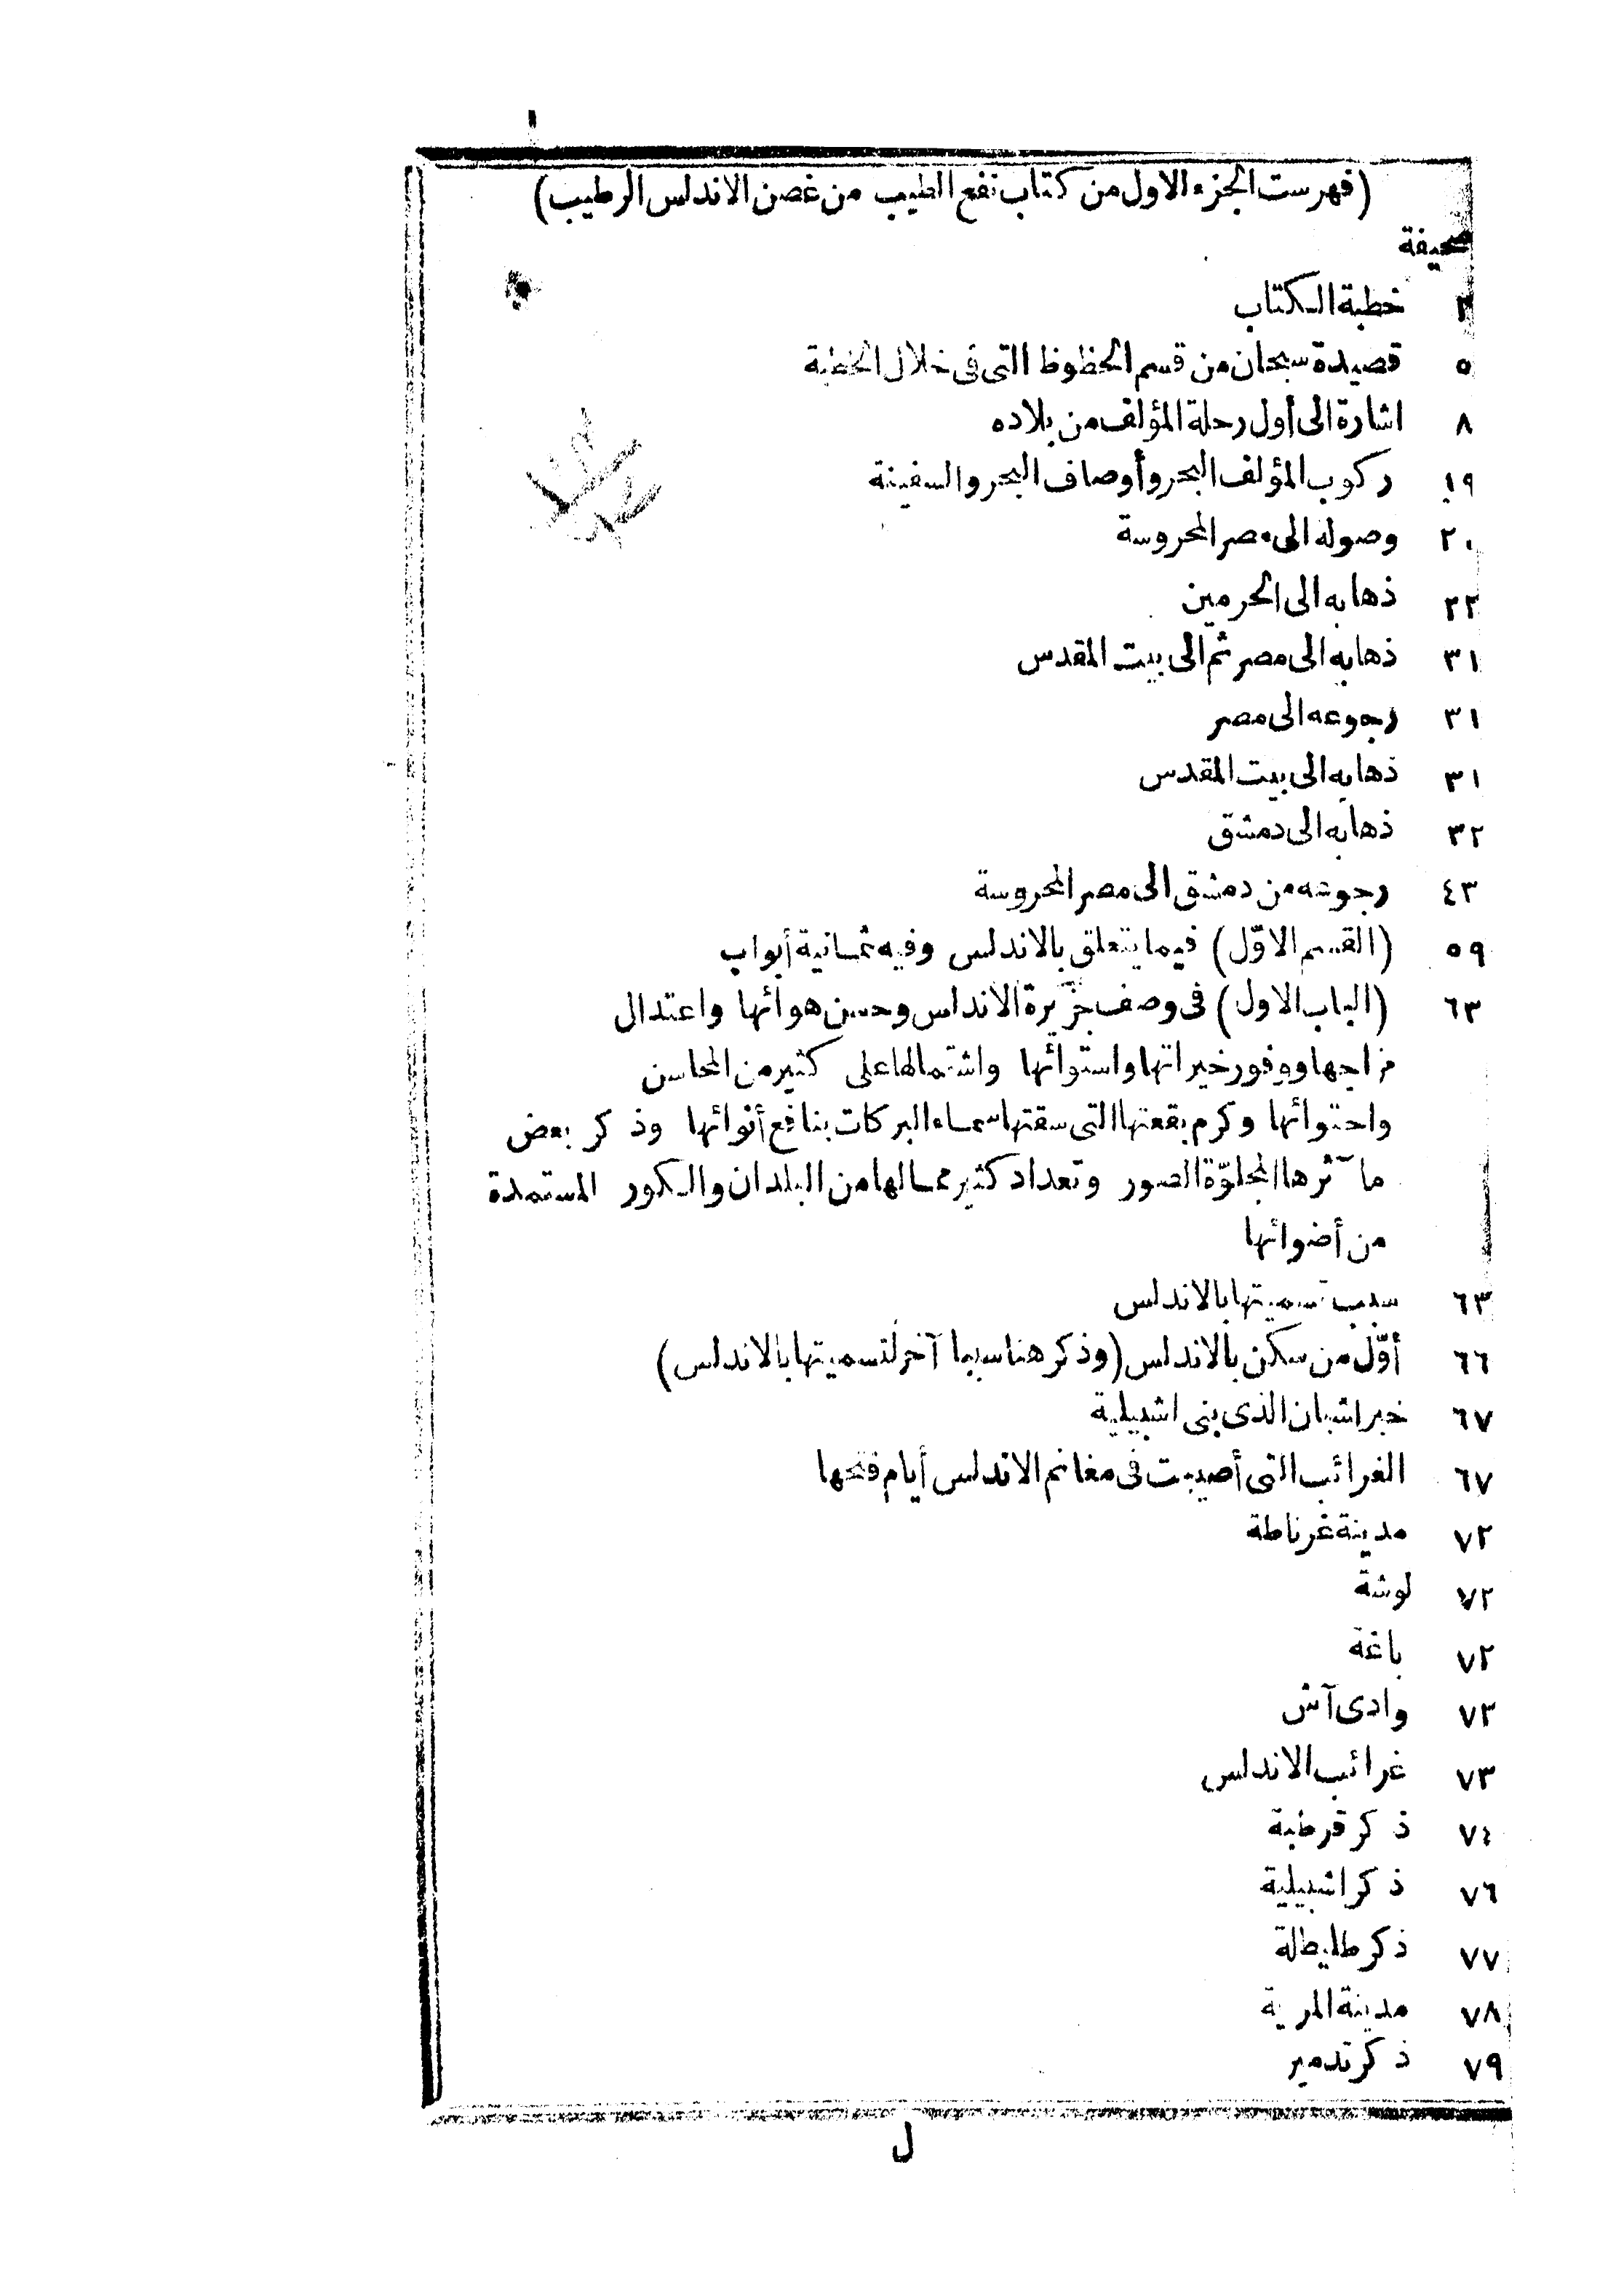 (فهرست الجزء الاول من كتاب نفح الطيب من غصن الاندلس الرطيب)
صحيفة
٢ خطبة الكتاب
٥ قصيدة سبحان من قسم الحظوظ التى فى خلال الخطبة
٨ اشارة الى أول رحلة المؤلف من بلاده
١٩ ركوب المؤلف البحر وأوصاف البحر والسفينة
٢٠ وصوله الى مصر المحروسة
٢٢ ذهابه الى الحرمين
٣١ ذهابه الى مصر ثم الى بيت المقدس
٣١ رجوعه الى مصر
٣١ ذهابه الى بيت المقدس
٣٢ ذهابه الى دمشق
٤٣ رجوعه من دمشق الى مصر المحروسة
٥٩ (القسم الاوّل) فيما يتعلق بالاندلس وفيه ثمانية أبواب
٦٣ (الباب الاول) فى وصف جزيرة الاندلس وحسن هوائها واعتدال
مزاجها ووفور خيراتها واستوائها واشتمالها على كثير من المحاسن
واحتوائها وكرم بقعتها التى سقتها سماء البركات بنافع أنوائها وذكر بعض
مآثرها المجلوّة الصور وتعداد كثير مما لها من البلدان والكور المستمدة
من أضوائها
٦٣ سبب تسميتها بالاندلس
٦٦ أوّل من سكن بالاندلس (وذكر هنا سببا آخر لتسميتها بالاندلس)
٦٧ خبر اشبان الذى بنى اشبيلية
٦٧ الغرائب التى أصيبت فى مغانم الاندلس أيام فتحها
٧٢ مدينة غرناطة
٧٢ لوشة
٧٢ باغة
٧٣ وادى آش
٧٣ غرائب الاندلس
٧٤ ذكر قرطبة
٧٦ ذكر اشبيلية
٧٧ ذكر طليطلة
٧٨ مدينة المرية
٧٩ ذكر تدمير
ل